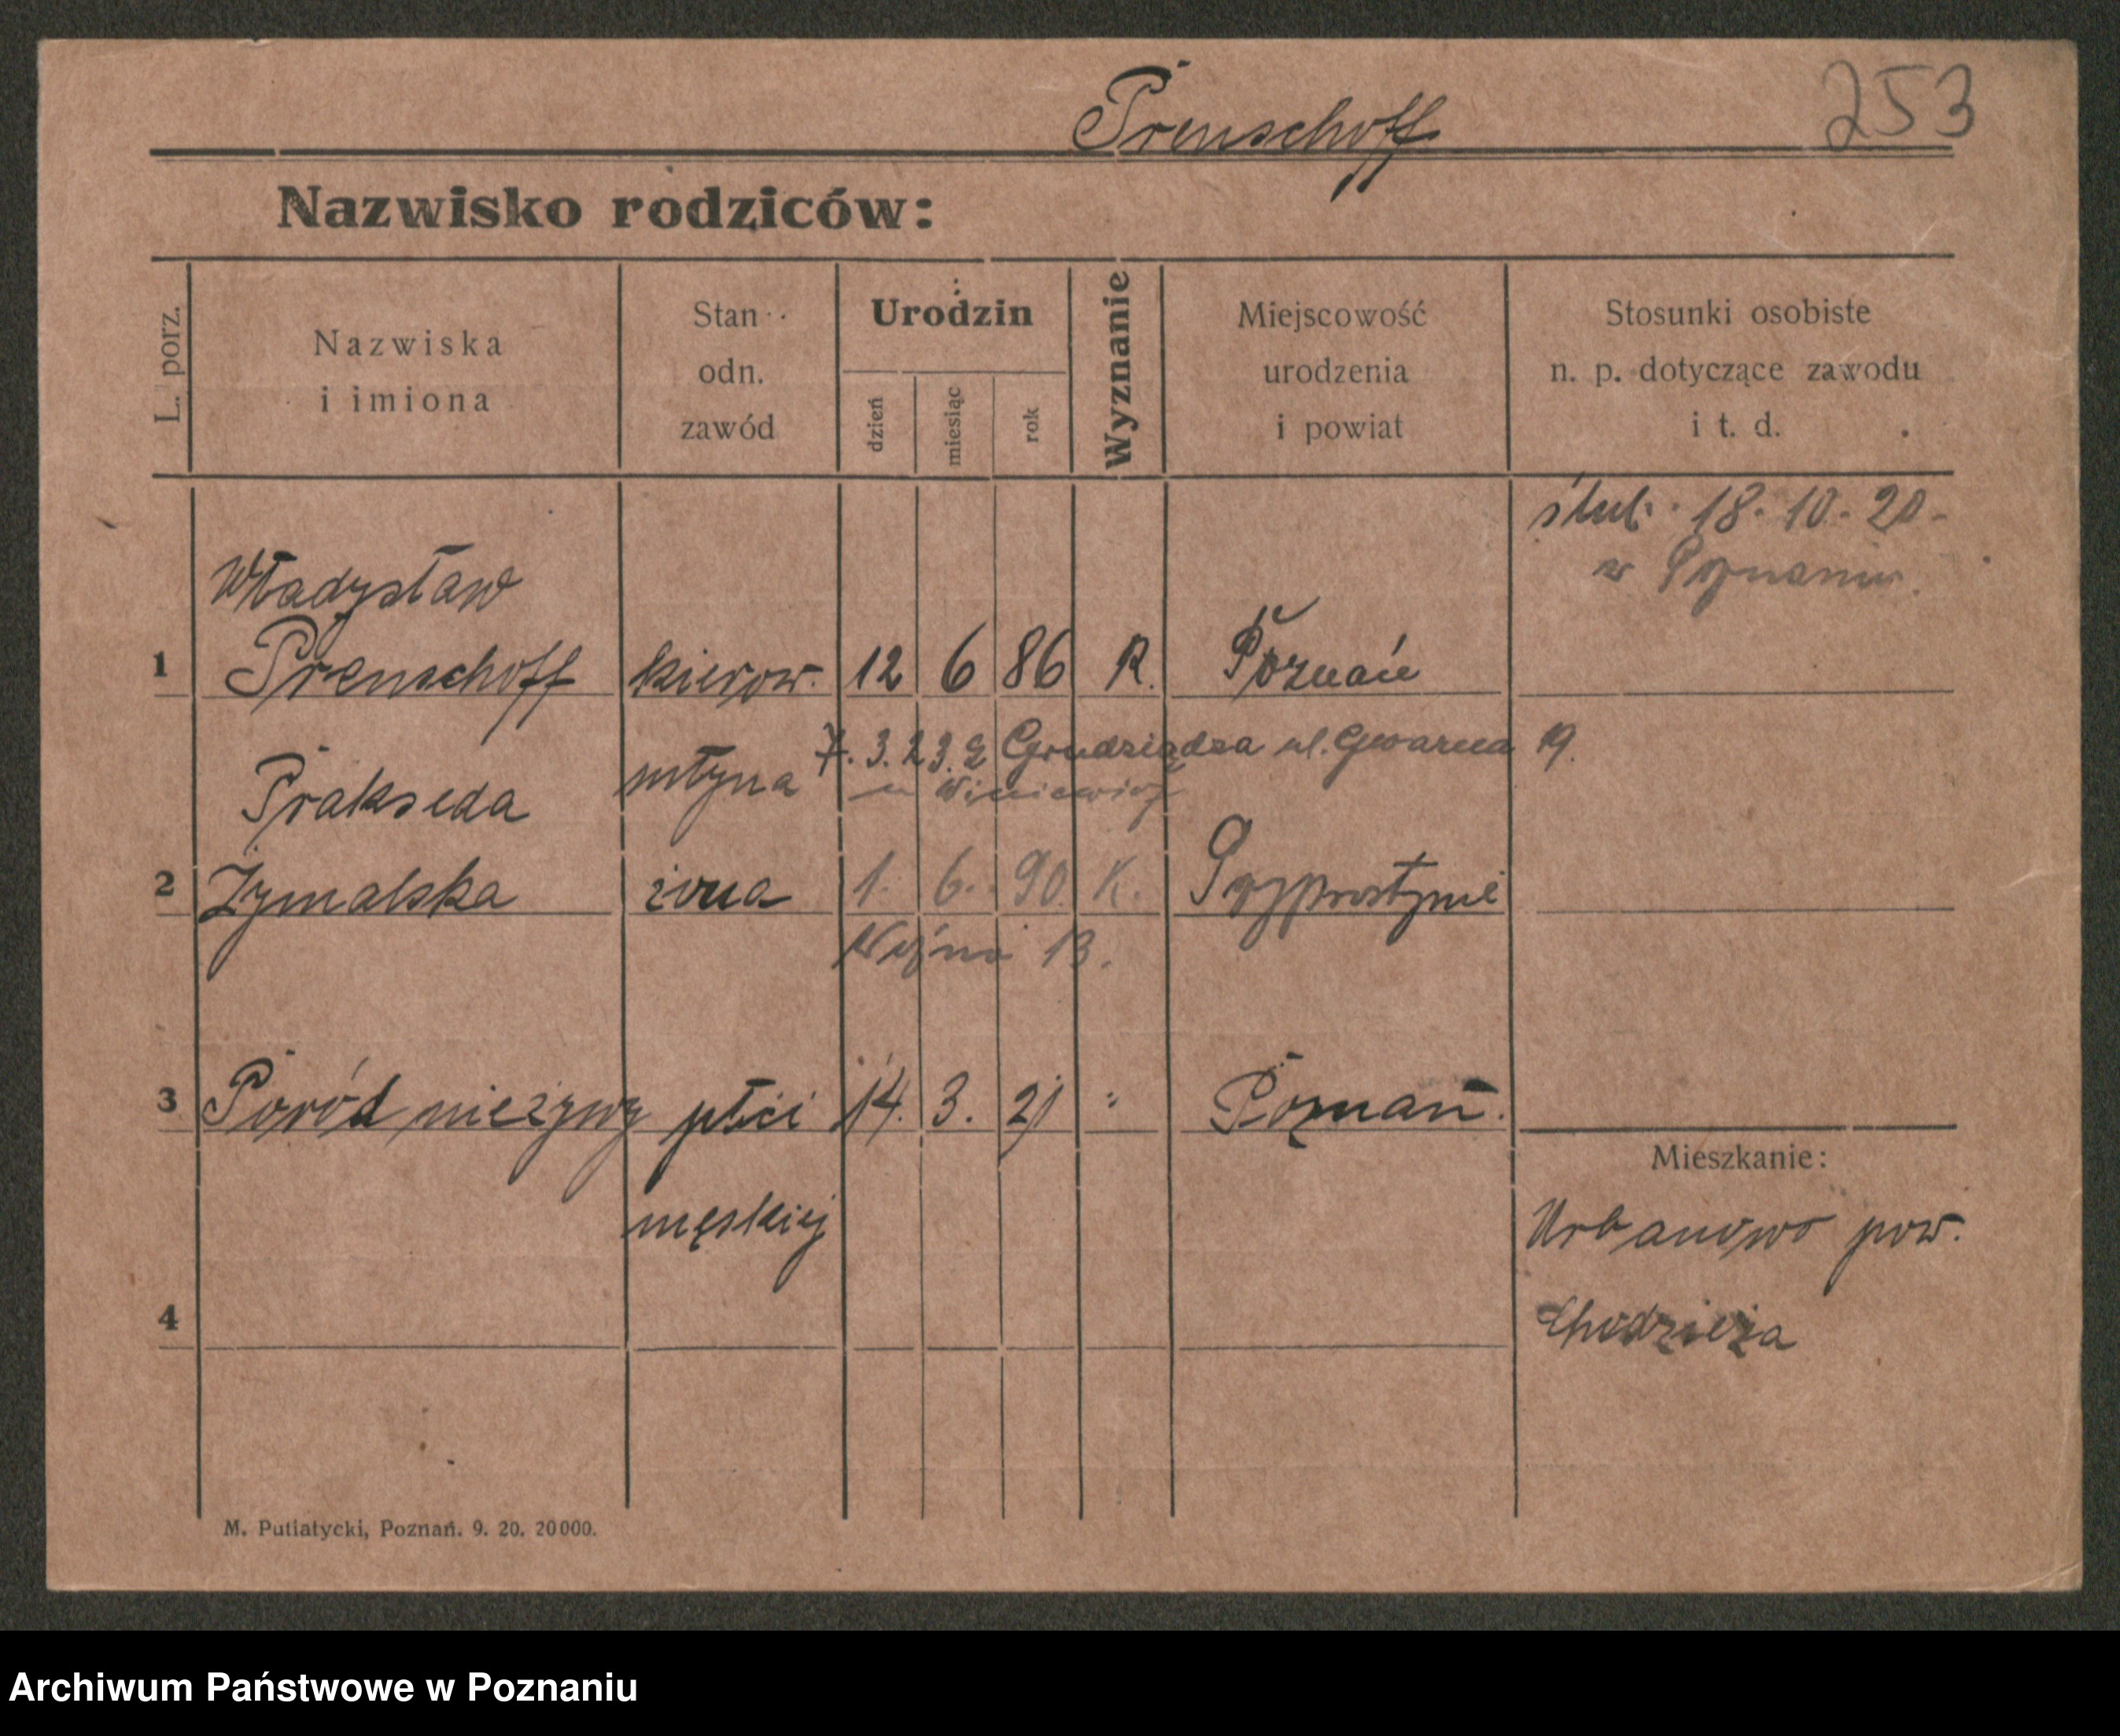 Prenschoff 253
Nazwisko rodziców:
L. porz.
Nazwiska
i imiona
Stan
odn.
zawód
Urodzin
dzień
miesiąc
rok
Wyznanie
Miejscowość
urodzenia
i powiat
Stosunki osobiste
n. p. dotyczące zawodu
i t. d.
ślub. 18. 10. 20.
w Poznaniu.
Władysław
1 Prenschoff kierow. 12 6 86 R. Poznań
młyna 7. 3. 23. z Grudziądza ul. Gwarna 19.
Prakseda
u
2 Żymalska żona 1. 6. 90. K. Przyprostynie
Woźna 13.
3 Poród nieżywy płci 14. 3. 21 " Poznań.
męskiej
Mieszkanie:
Urbanowo pow.
Chodzieża
4
M. Putiatycki, Poznań. 9. 20. 20000.
Archiwum Państwowe w Poznaniu